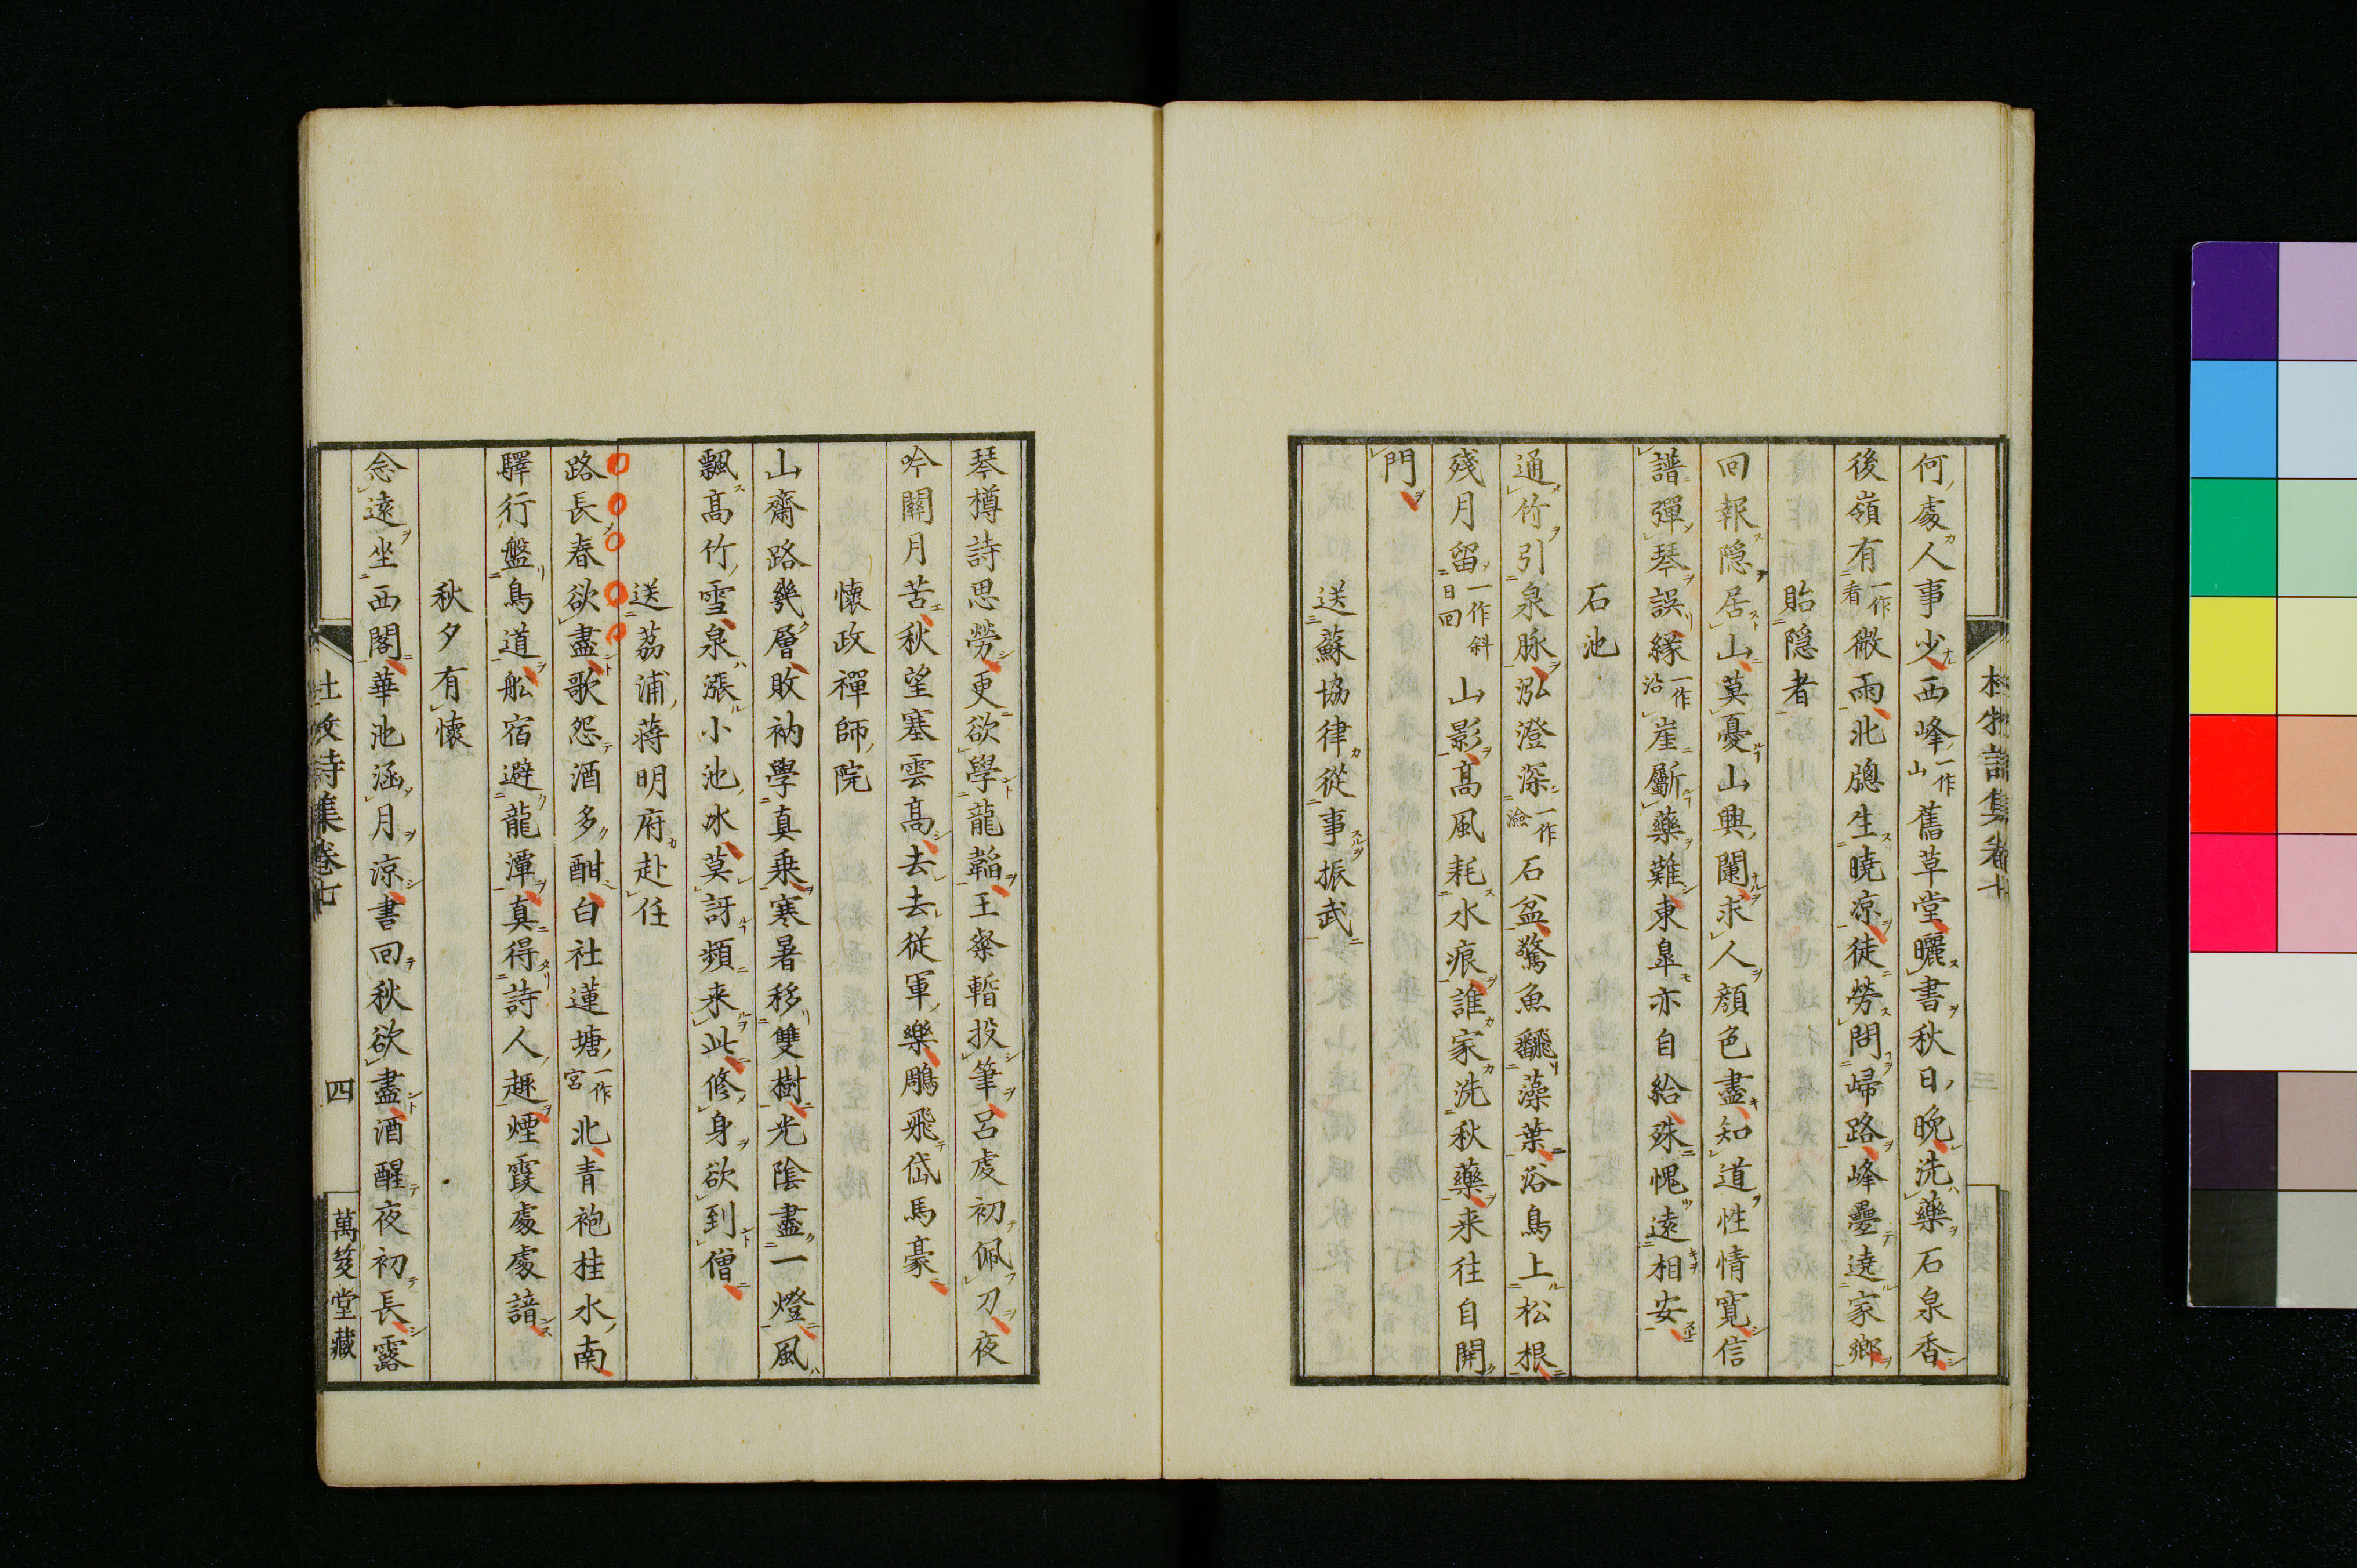 何處人事少西峰一作山舊草堂曬書秋日晚洗藥石泉香
後嶺有一作看微雨北牕生曉凉徒勞問㱕路峰疊遶家鄉
貽隠者
回報隠居山莫憂山興闌求人顔色盡知道性情寬信
譜彈琴誤緣一作沿崖斸藥難東皐亦自給殊愧遠相安
石池
通竹引泉脉泓澄深一作瀲石盆驚魚翻藻葉浴鳥上松根
殘月留一作斜日回山影髙風耗水痕誰家洗秋藥来往自開
門
送蘇協律從事振武
琴樽詩思勞更欲學龍韜王粲暫投筆呂虔初佩刀夜
吟關月苦秋望塞雲髙去去從軍樂鵰飛岱馬豪
懐政禪師院
山齋路幾層敗衲學真乗寒暑移雙樹光陰盡一燈風
飄髙竹雪泉漲小池冰莫訝頻来此修身欲到僧
送荔浦蔣明府赴任
路長春欲盡歌怨酒多酣白社蓮塘一作宮北青袍桂水南
驛行盤鳥道舩宿避龍潭真得詩人趣煙霞處處諳
秋夕有懐
念遠坐西閣華池涵月凉書回秋欲盡酒醒夜初長露
杜牧詩集卷七
四
萬笈堂藏